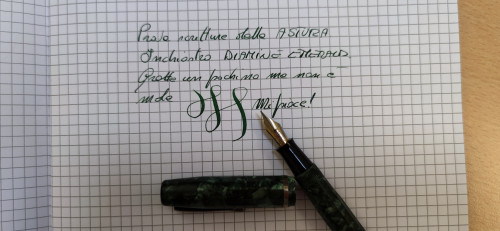 Prova scrittura della ASTURA
Inchiostro DIAMINE EMERALD.
Gratta un pochino ma non è
male Mi piace!